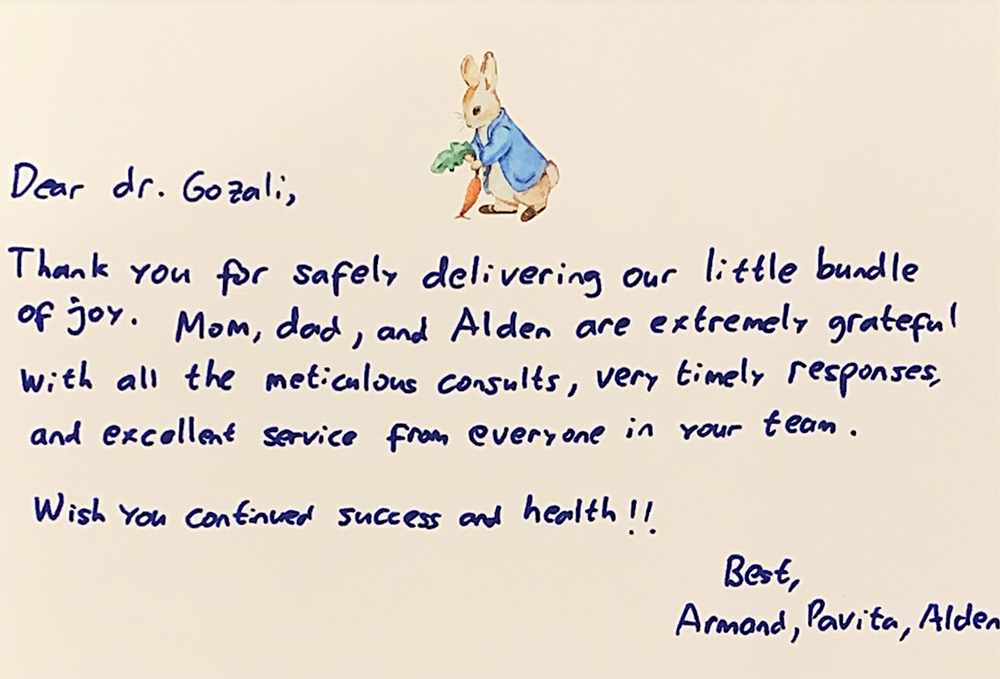 Dear dr. Gozali,
Thank you for safely delivering our little bundle
of joy. Mom, dad, and Alden are extremely grateful
with all the meticulous consults, very timely responses,
and excellent service from everyone in your team.
Wish you continued success and health!!
Best,
Armand, Pavita, Alden